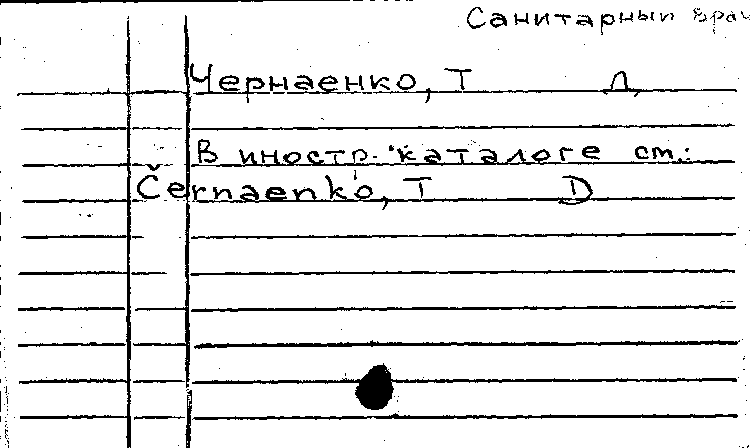 Санитарный врач
Чернаенко, Т Д
В иностр. каталоге см.:
Černaenko, T D